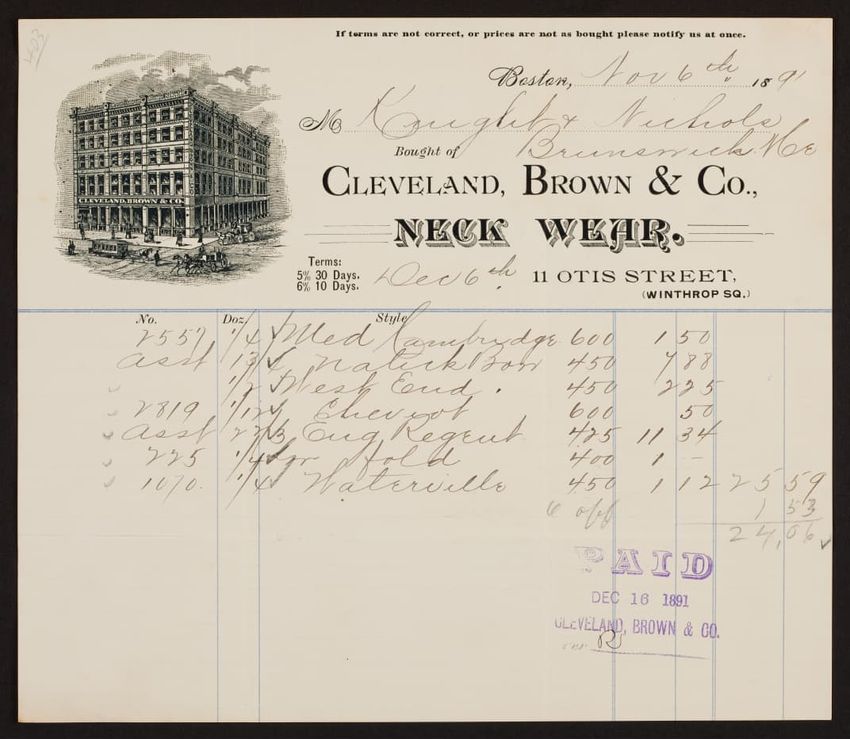 403
If terms are not correct, or prices are not as bought please notify us at once.
Boston, Nov 6th 1891
M Knight & Nichols
Brunswick Me
Bought of
CLEVELAND, BROWN & CO.,
CLEVELAND, BROWN & CO.
NECK WEAR.
Terms:
5% 30 Days.
6% 10 Days.
Dec 6th
11 OTIS STREET,
(WINTHROP SQ.)
No. Doz. Style
2557 1/4 Med Cambridge 600 1 50
Asst 1 3/4 Natick Bow 450 7 88
1/2 West End. 450 2 25
2819 1/12 Cheviot 600 50
Asst 2 2/3 Eng Regent 425 11 34
225 1/4 fold 400 1 -
1070. 1/4 Waterville 450 1 12 25 59
6 off 1 53
24,06
PAID
DEC 16 1891
CLEVELAND, BROWN & CO.